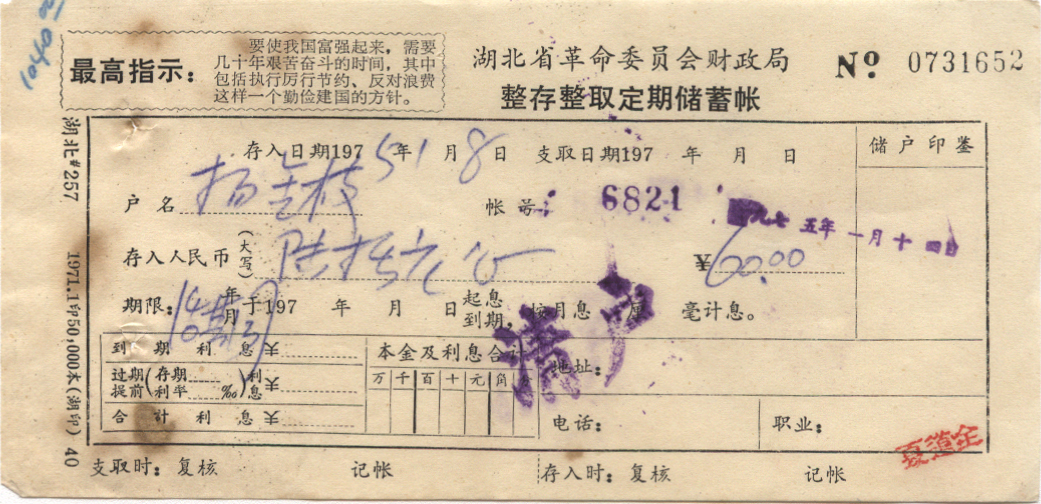 1040
最高指示：
要使我国富强起来，需要
几十年艰苦奋斗的时间，其中
包括执行厉行节约、反对浪费
这样一个勤俭建国的方针。
湖北省革命委员会财政局
整存整取定期储蓄帐
No. 0731652
湖北#257 1971.1印50,000本(湖印) 40
存入日期197 5 年 1 月 8 日 支取日期197 年 月 日
储户印鉴
户名 杨金枝 帐号： 6821
一九七五年一月十四日
存入人民币(大写) 陆拾元 ¥ 60.00
期限： 年月 于197 年 月 日 起息到期，按月息 厘 毫计息。
清户
到期利息¥
过期提前(存期利率 ‰)利息¥
合计利息¥
本金及利息合计
万千百十元角
地址：
电话：
职业：
夏道全
支取时：复核 记帐 存入时：复核 记帐